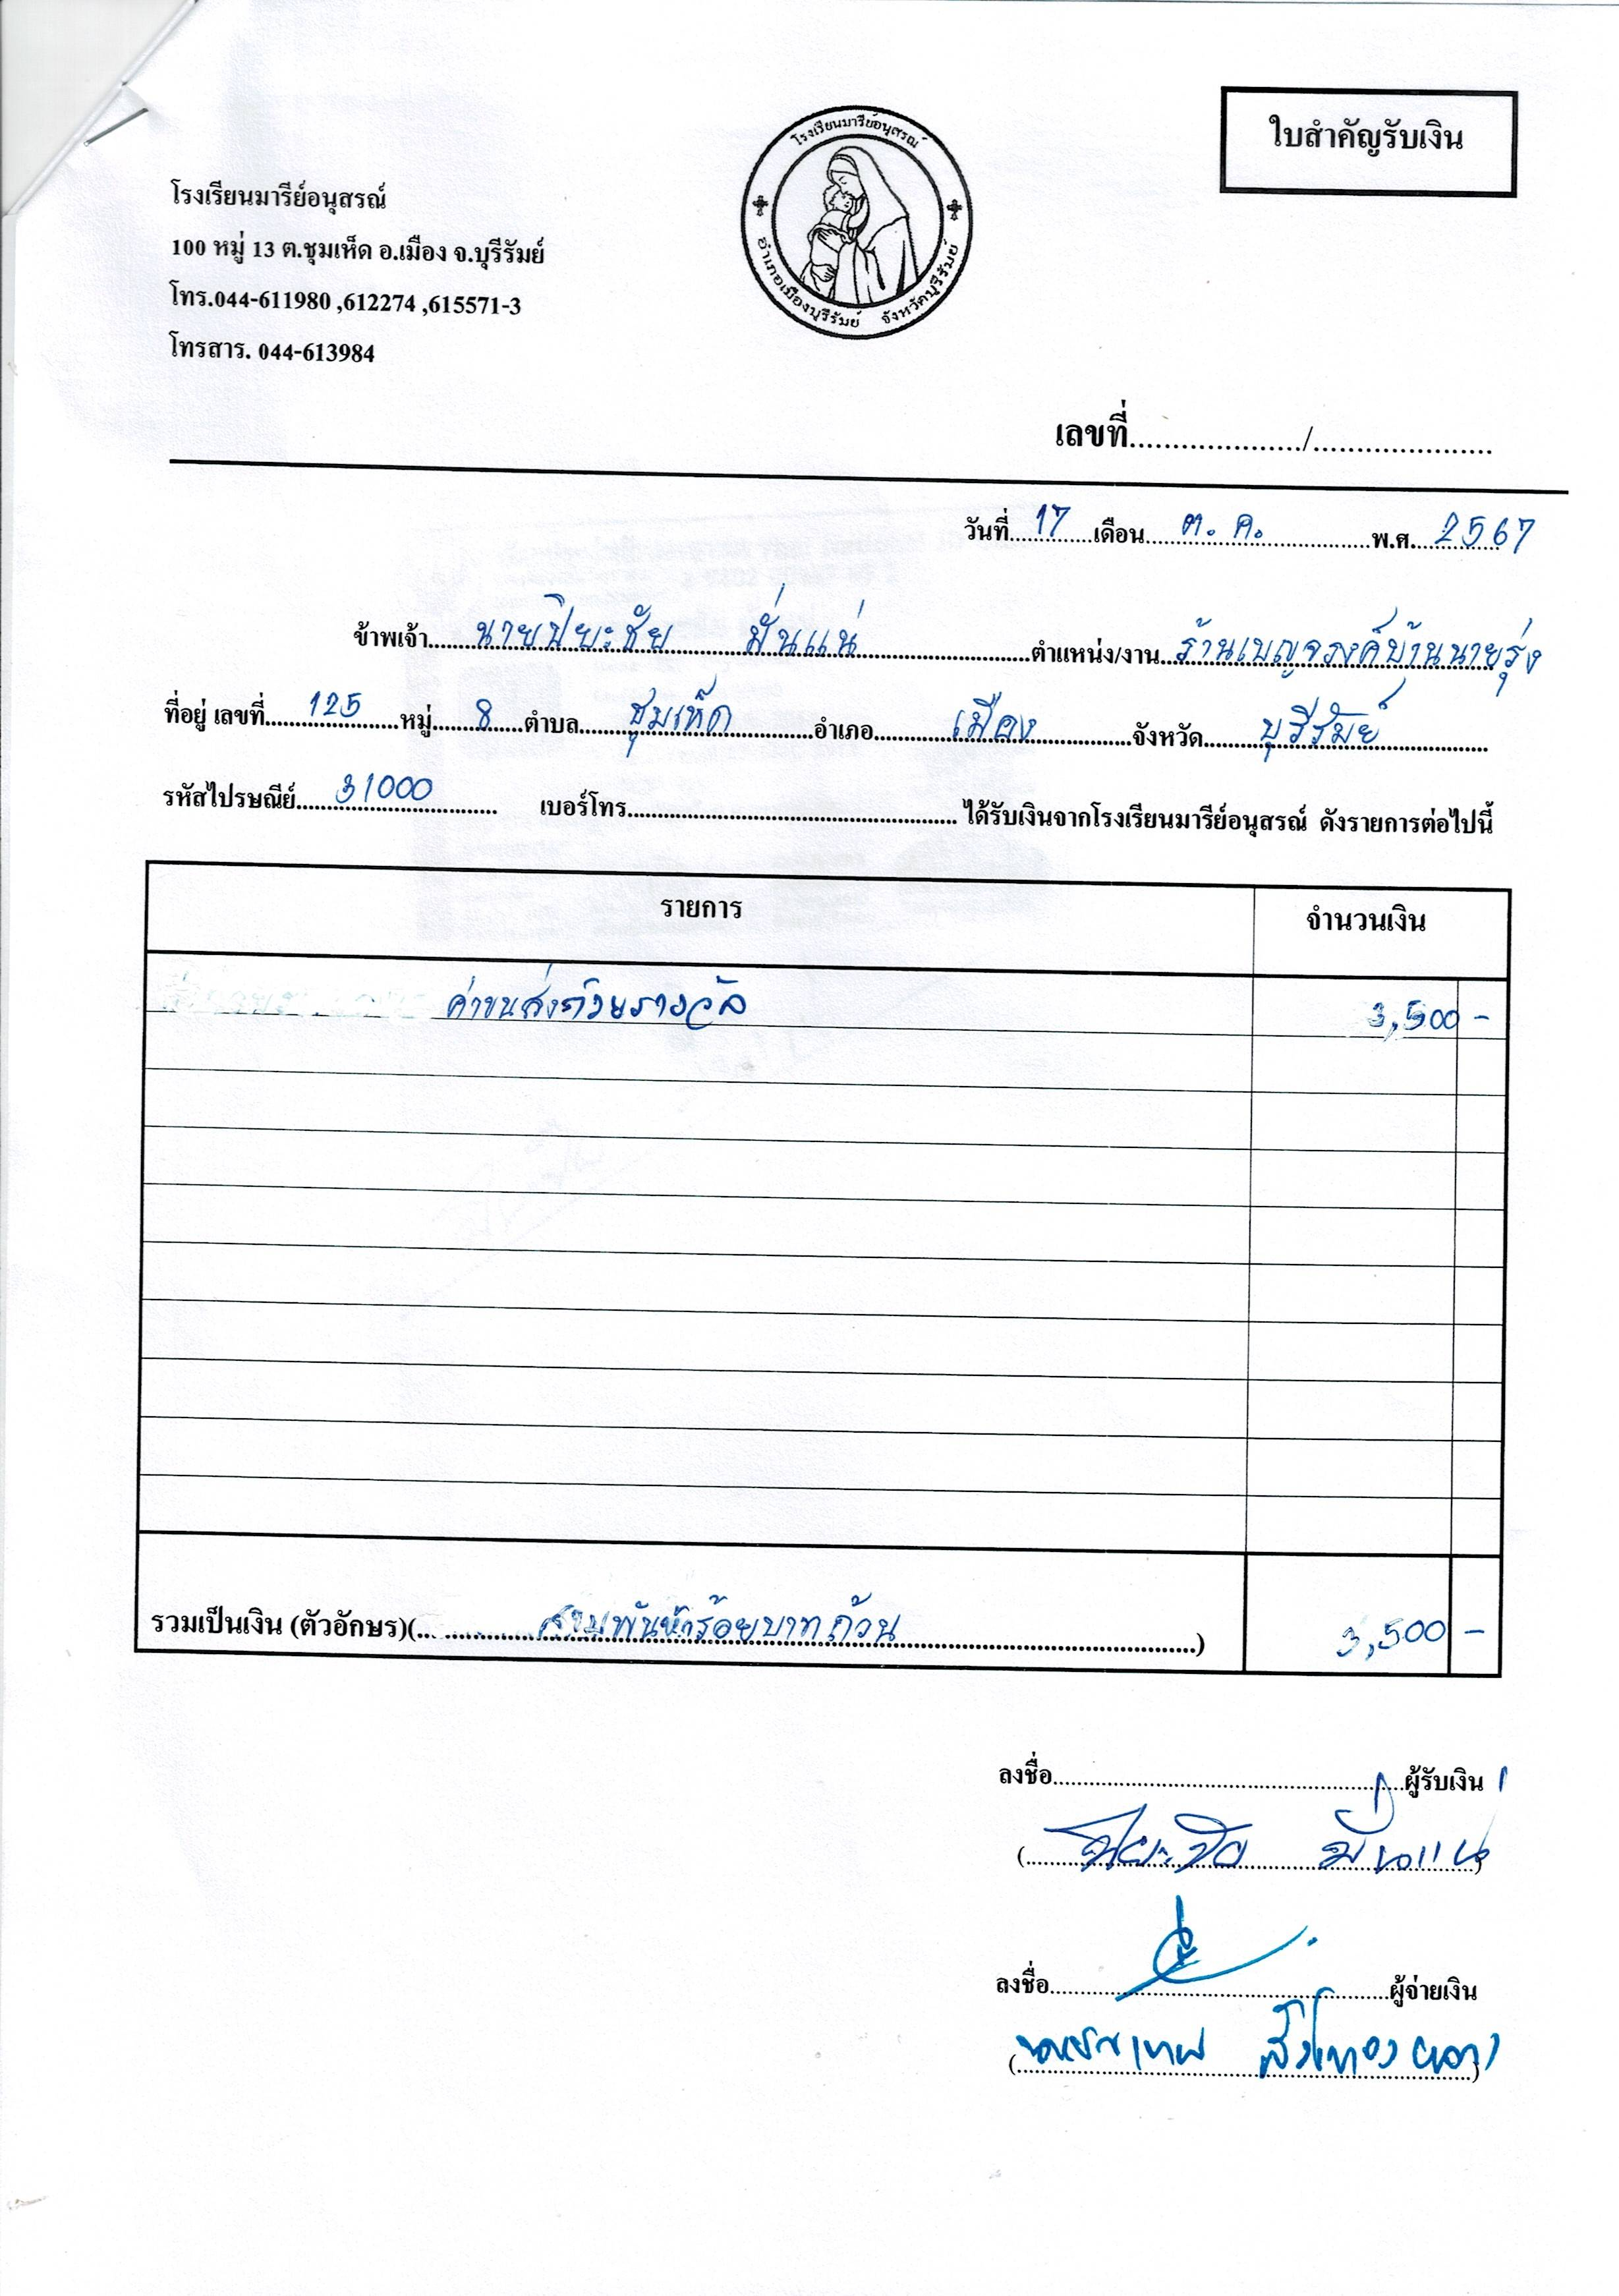 ใบสำคัญรับเงิน
โรงเรียนมารีย์อนุสรณ์
อำเภอเมืองบุรีรัมย์ จังหวัดบุรีรัมย์
โรงเรียนมารีย์อนุสรณ์
100 หมู่ 13 ต.ชุมเห็ด อ.เมือง จ.บุรีรัมย์
โทร.044-611980 ,612274 ,615571-3
โทรสาร. 044-613984
เลขที่..................../.....................
วันที่ 17 เดือน ต.ค. พ.ศ. 2567
ข้าพเจ้า นายปิยะชัย มั่นแน่ ตำแหน่ง/งาน ร้านเบญจรงค์บ้านนายรุ่ง
ที่อยู่ เลขที่ 125 หมู่ 8 ตำบล ชุมเห็ด อำเภอ เมือง จังหวัด บุรีรัมย์
รหัสไปรษณีย์ 31000 เบอร์โทร........ ได้รับเงินจากโรงเรียนมารีย์อนุสรณ์ ดังรายการต่อไปนี้
รายการ จำนวนเงิน
ค่าขนส่งถ้วยรางวัล 3,500 -
รวมเป็นเงิน (ตัวอักษร)( สามพันห้าร้อยบาทถ้วน ) 3,500 -
ลงชื่อ........ผู้รับเงิน
(ปิยะชัย มั่นแน่)
ลงชื่อ........ผู้จ่ายเงิน